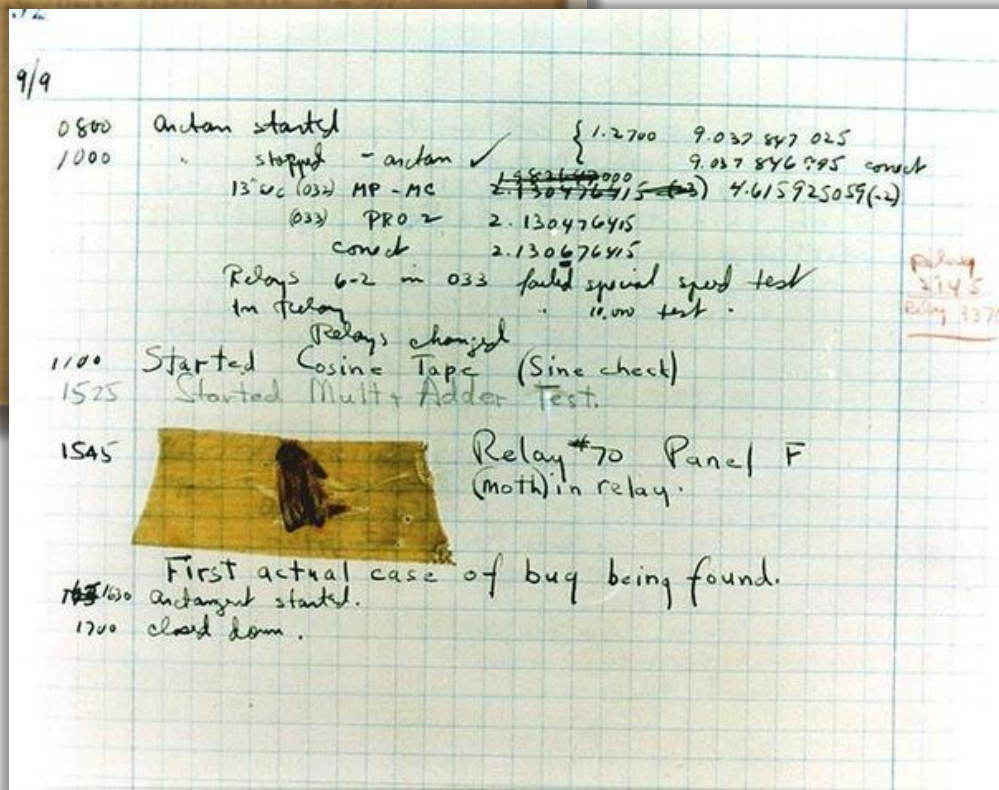 9/9
0800 arctan started { 1.2700 9.037 847 025
1000 " stopped - arctan ✓ 9.037 846 795 correct
13"uc (032) MP - MC 2.130476415 (-3) 4.615925059(-2)
(033) PRO 2 2.130476415
correct 2.130676415
Relays 6-2 in 033 failed special speed test
In Relay " 10,000 test .
Relay
Relay 337
Relays changed
1100 Started Cosine Tape (Sine check)
1525 Started Mult + Adder Test.
1545 Relay #70 Panel F
(moth) in relay.
First actual case of bug being found.
1630 arctangent started.
1700 closed down.